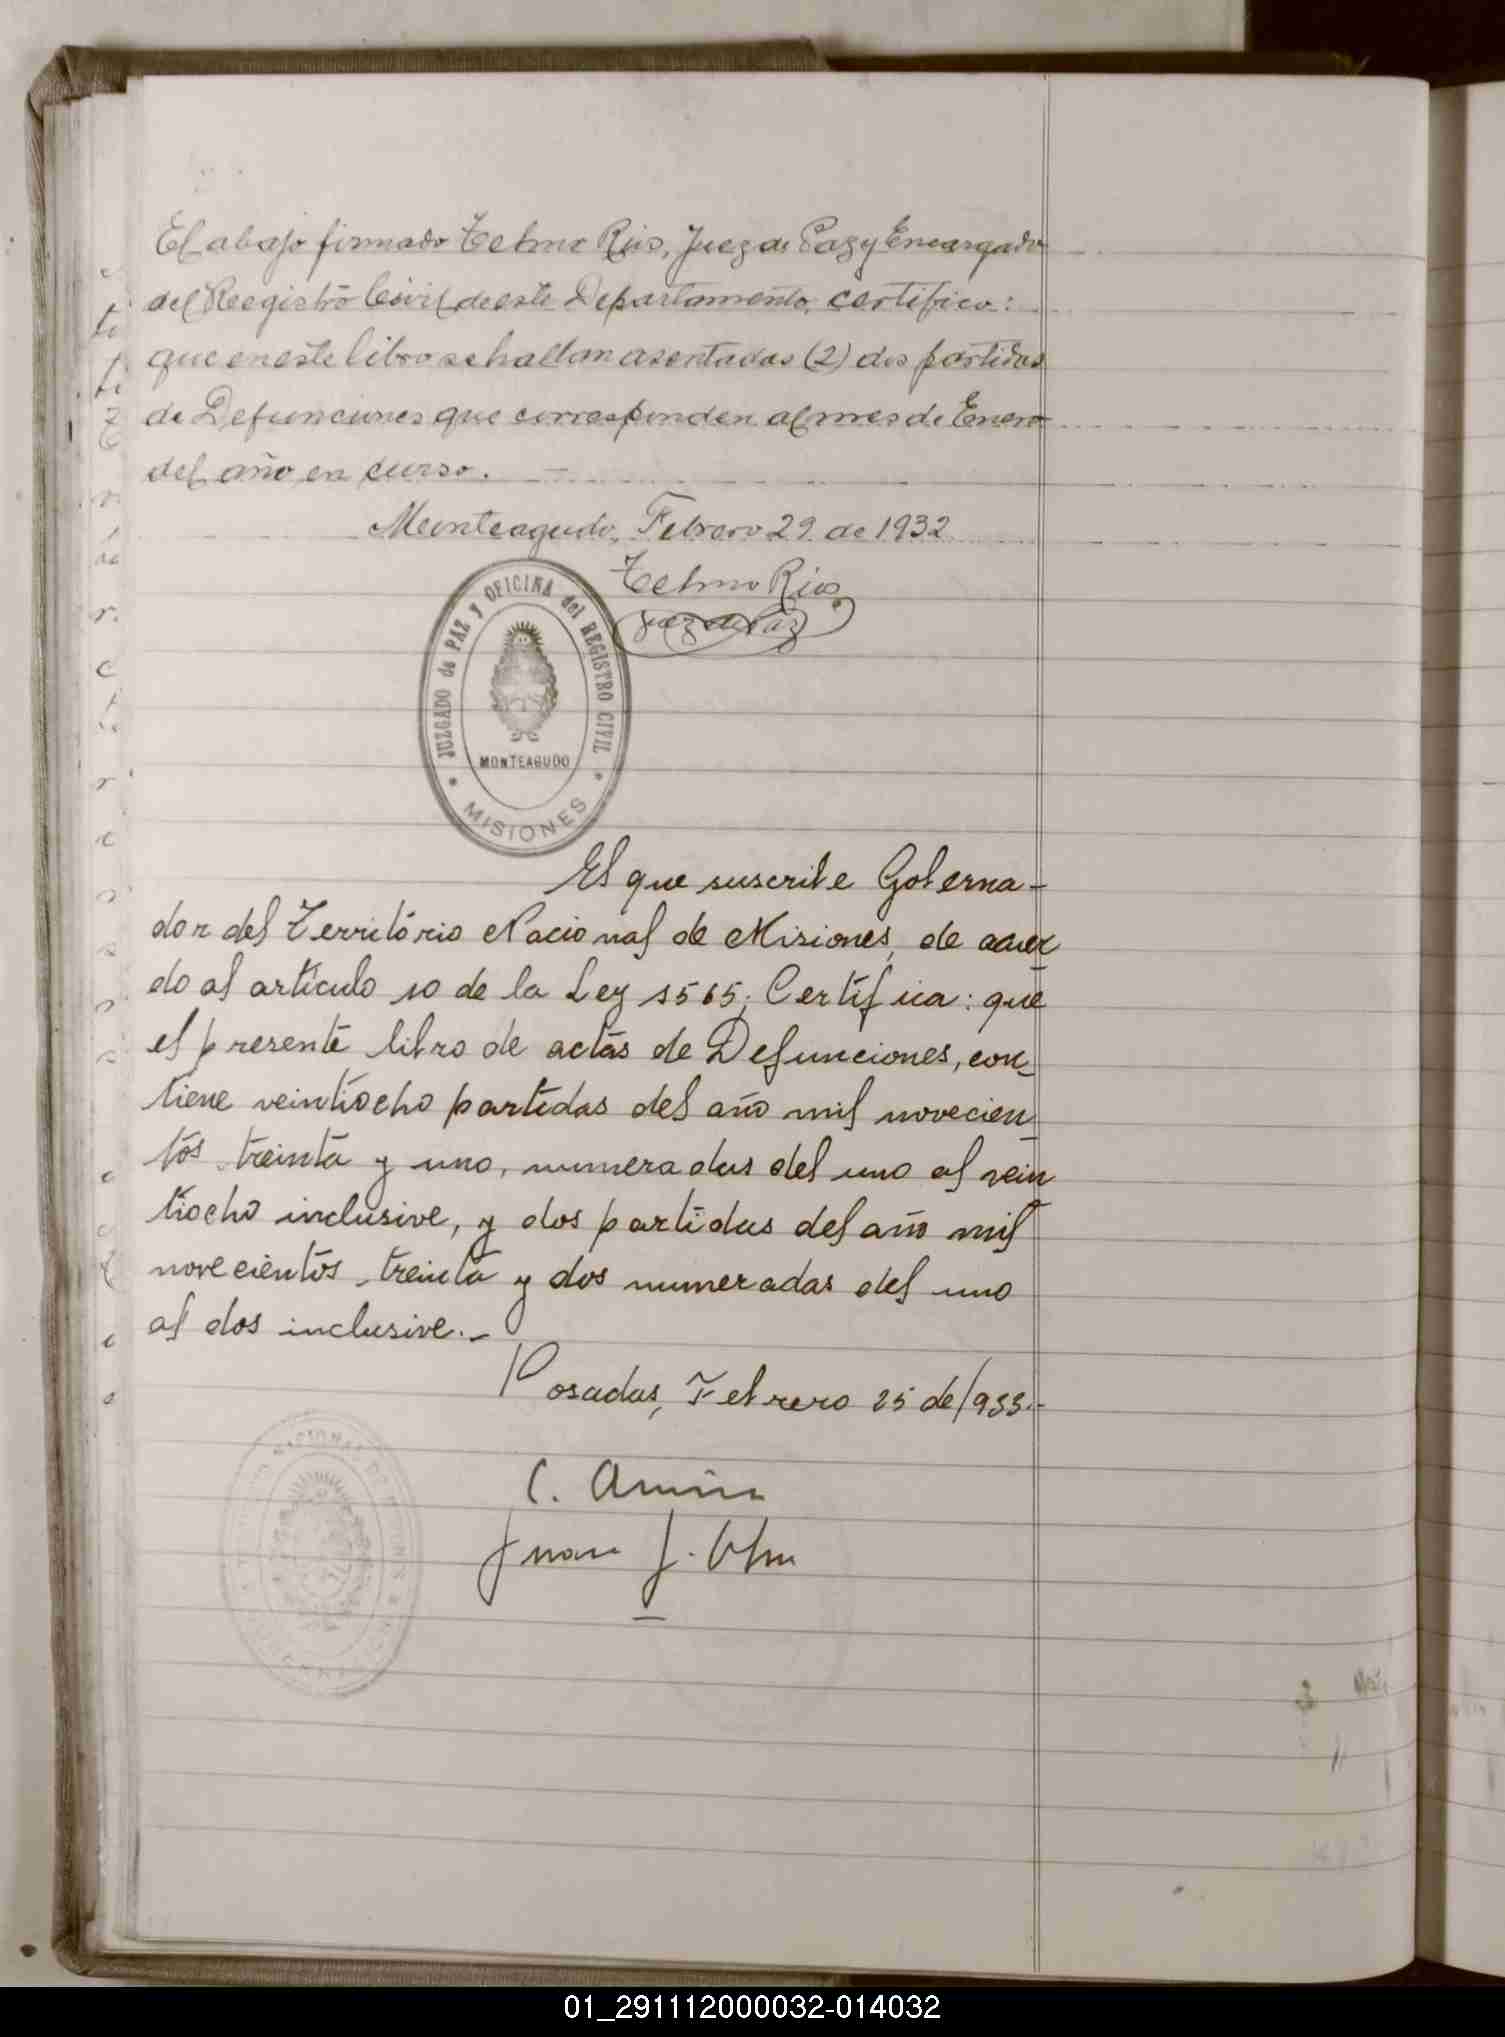 El abajo firmado Telmo Rios, Juez de Paz y Encargado
del Reegistro Civil de este Departamento, certifico:
que en este libro se hallan asentadas (2) dos partidas
de Defunciones que corresponden al mes de Enero
del año en curso.
Monteagudo, Febrero 29 de 1932
Telmo Rios
Juez de Paz
JUZGADO de PAZ y OFICINA del REGISTRO CIVIL
MONTEAGUDO
MISIONES
El que suscribe Goberna-
dor del Territorio Nacional de Misiones, de acuer
do al artículo 10 de la Ley 1565; Certifica: que
el presente libro de actas de Defunciones, con-
tiene veintiocho partidas del año mil novecien
tos treinta y uno, numeradas del uno al vein
tiocho inclusive, y dos partidas del año mil
novecientos treinta y dos numeradas del uno
al dos inclusive.-
Posadas, Febrero 25 de 1933.-
C.
Juan J.
01_291112000032-014032